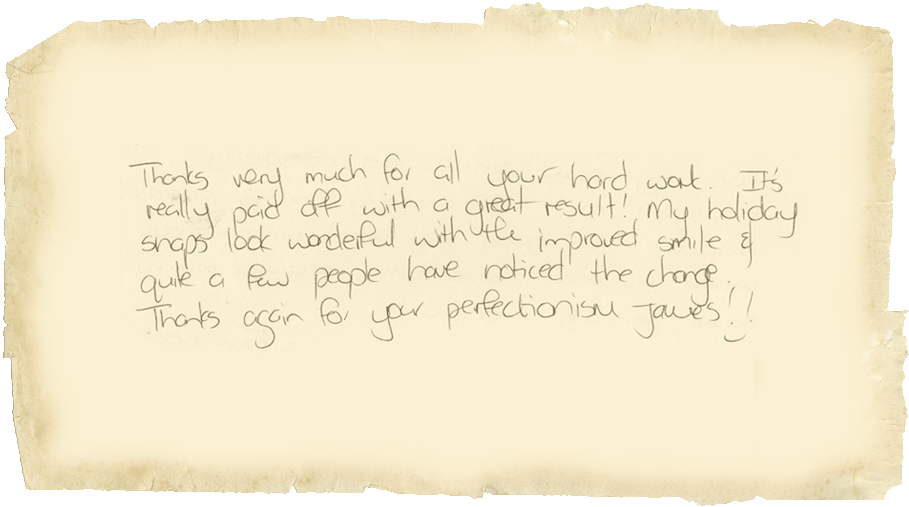 Thanks very much for all your hard work. It's
really paid off with a great result! My holiday
snaps look wonderful with the improved smile &
quite a few people have noticed the change.
Thanks again for your perfectionism James!!